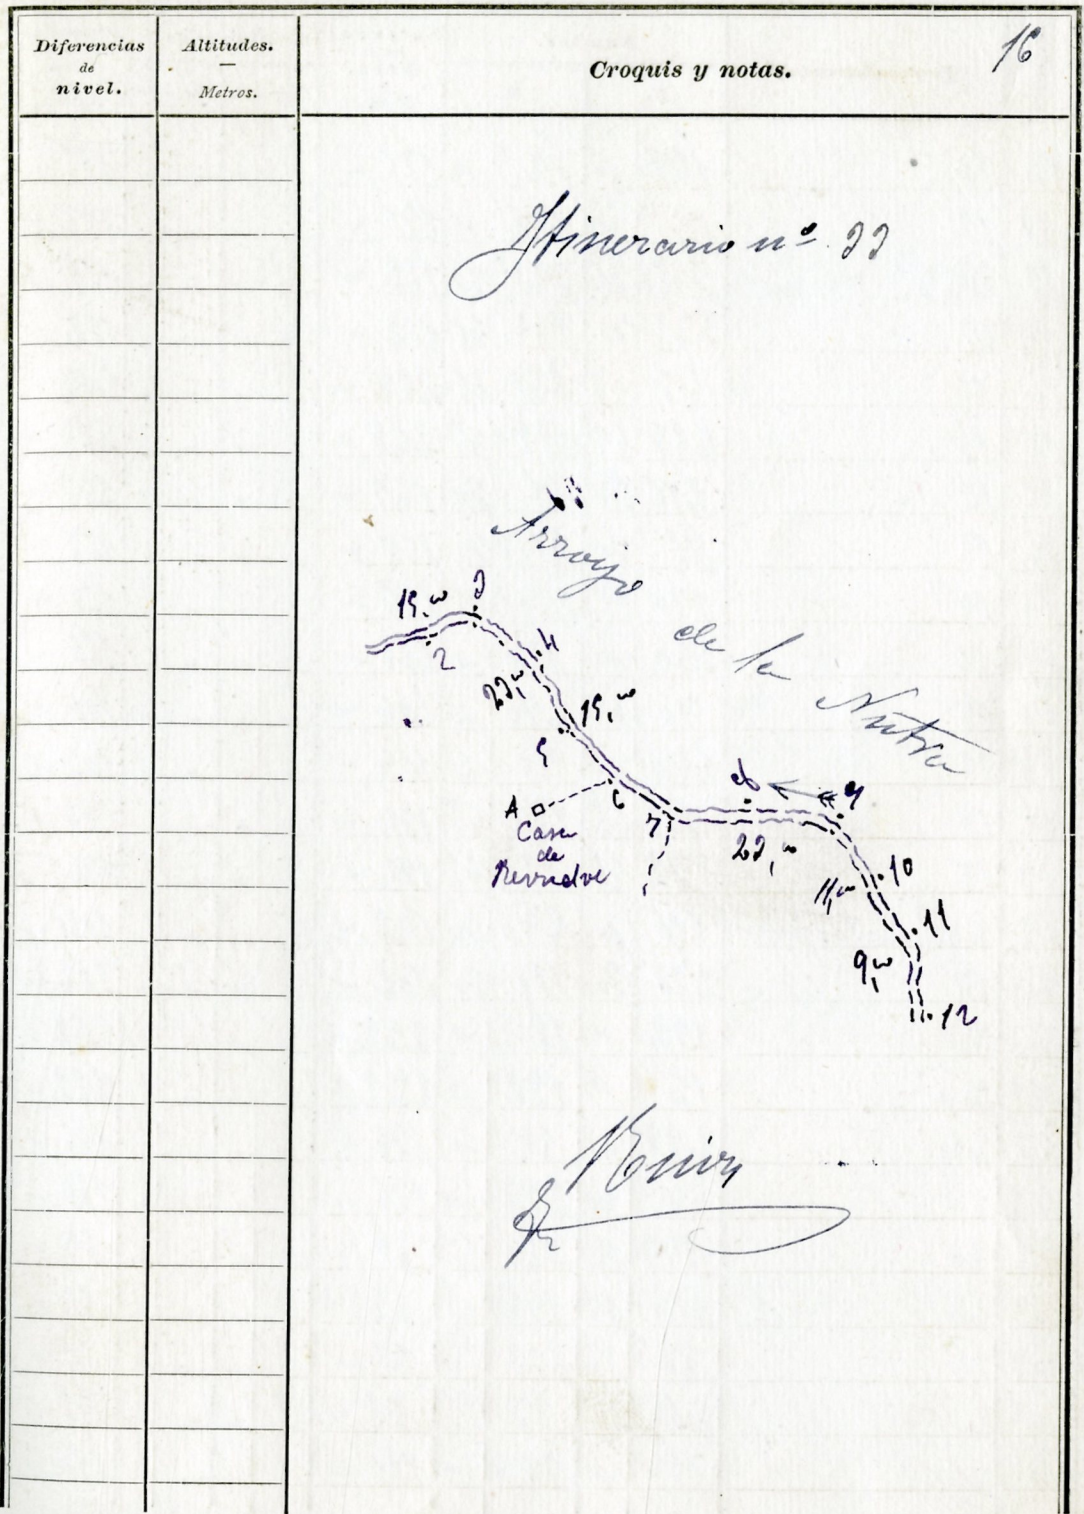 16
Diferencias
de
nivel.
Altitudes.
—
Metros.
Croquis y notas.
Itinerario nº 33
Arroyo
de la
Nutria
15,ᵐ
3
2
4
23,ᵐ
15,ᵐ
5
6
A
Casa
de
7
8
9
23,ᵐ
10
11,ᵐ
11
9,ᵐ
12
Ruiz